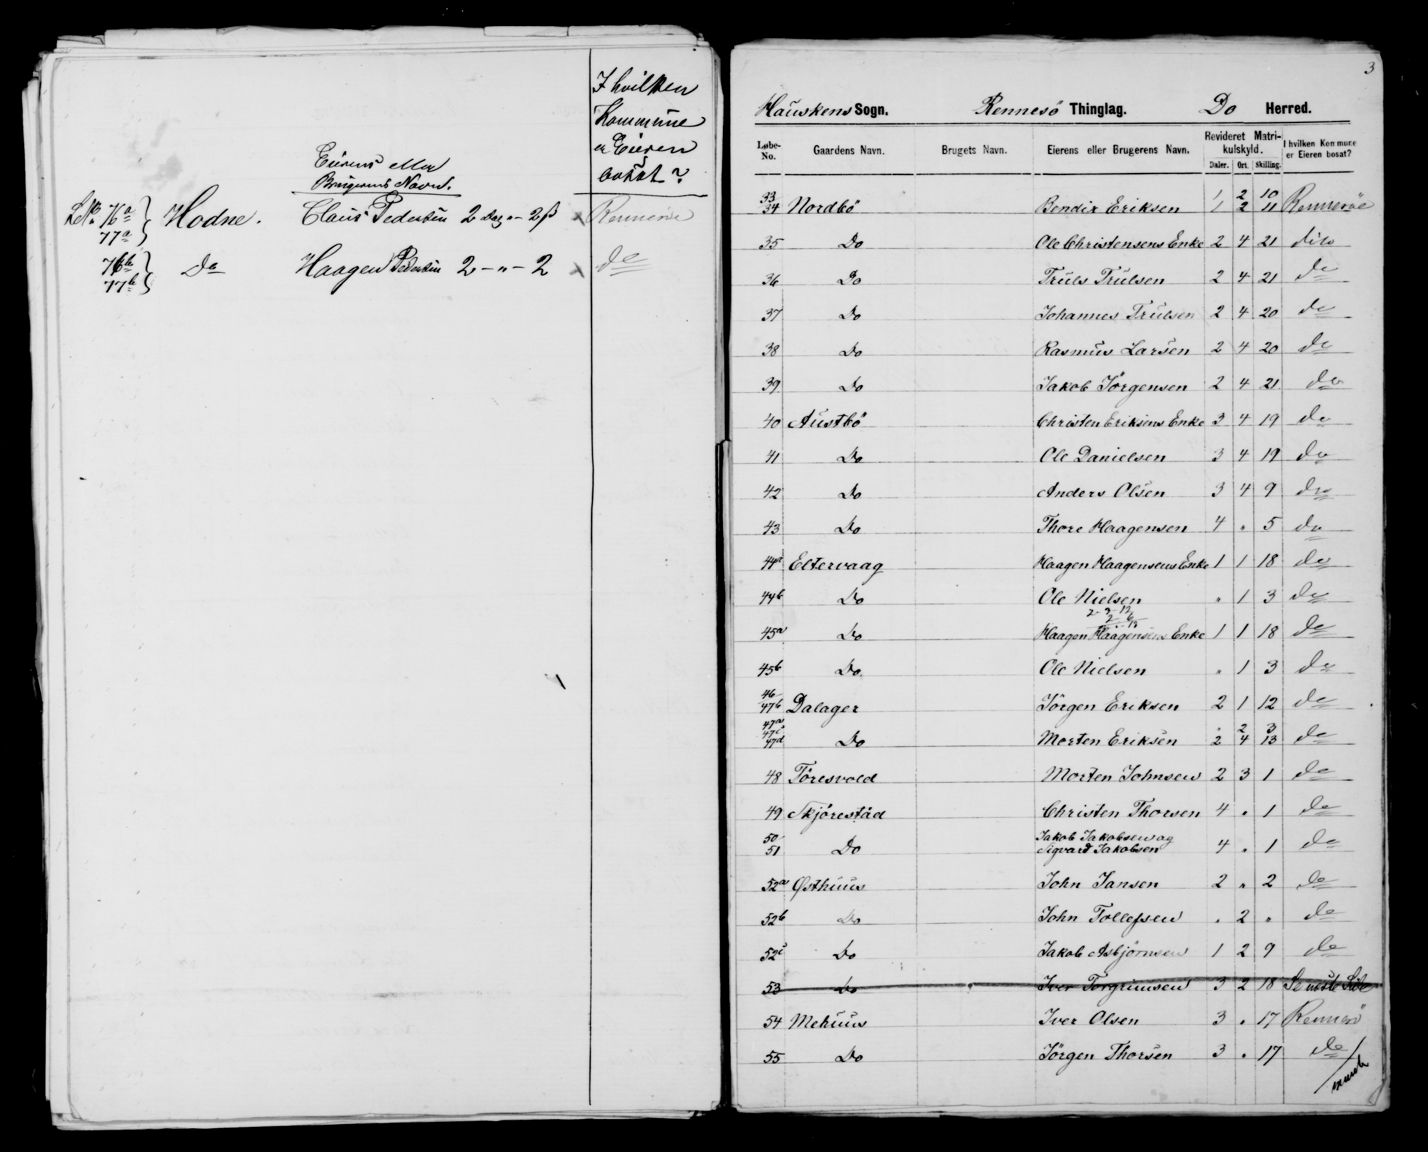 I hvilken
Kommune
er Eieren
bosat?
Eierens eller
Brugerens Navn.
LNo 76a
77a } Hodne. Claus Pedersen 2 Dal " 2 ß x Rennesø
76b
77b } Do Haagen Pedersen 2 - " - 2 x do
3
Hauskens Sogn. Rennesö Thinglag. Do Herred.
Løbe-No. Gaardens Navn. Brugets Navn. Eierens eller Brugerens Navn. Revideret Matrikulskyld. I hvilken Kommune er Eieren bosat?
Daler. Ort. Skilling.
33 1 2 10
34 Nordbö Bendix Eriksen 1 2 11 Rennesöe
35 Do Ole Christensens Enke 2 4 21 dito
36 Do Truls Trulsen 2 4 21 do
37 Do Johannes Trulsen 2 4 20 do
38 Do Rasmus Larsen 2 4 20 do
39 Do Jakob Jörgensen 2 4 21 do
40 Austbö Christen Eriksens Enke 3 4 19 do
41 Do Ole Danielsen 3 4 19 do
42 Do Anders Olsen 3 4 9 do
43 Do Thore Haagensen 4 " 5 do
44a Eltervaag Haagen Haagensens Enke 1 1 18 do
44b Do Ole Nielsen " 1 3 do
45a Do Haagen Haagensens Enke 1 1 18 do
45b Do Ole Nielsen " 1 3 do
46
47b Dalager Jörgen Eriksen 2 1 12 do
47a
47c " 2 3
47d Do Morten Eriksen 2 4 13 do
48 Töresvold Morten Johnsen 2 3 1 do
49 Skjörestad Christen Thorsen 4 " 1 do
50 Jakob Jakobsen og
51 Do Sigvard Jakobsen 4 " 1 do
52a Østhuus John Jansen 2 " 2 do
52b Do John Tollefsen " 2 " do
52c Do Jakob Asbjörnsen 1 2 9 do
53 Do Iver Torgrimsen 3 2 18 Se næste Side
54 Mehuus Iver Olsen 3 " 17 Rennesö
55 Do Jörgen Thorsen 3 " 17 do